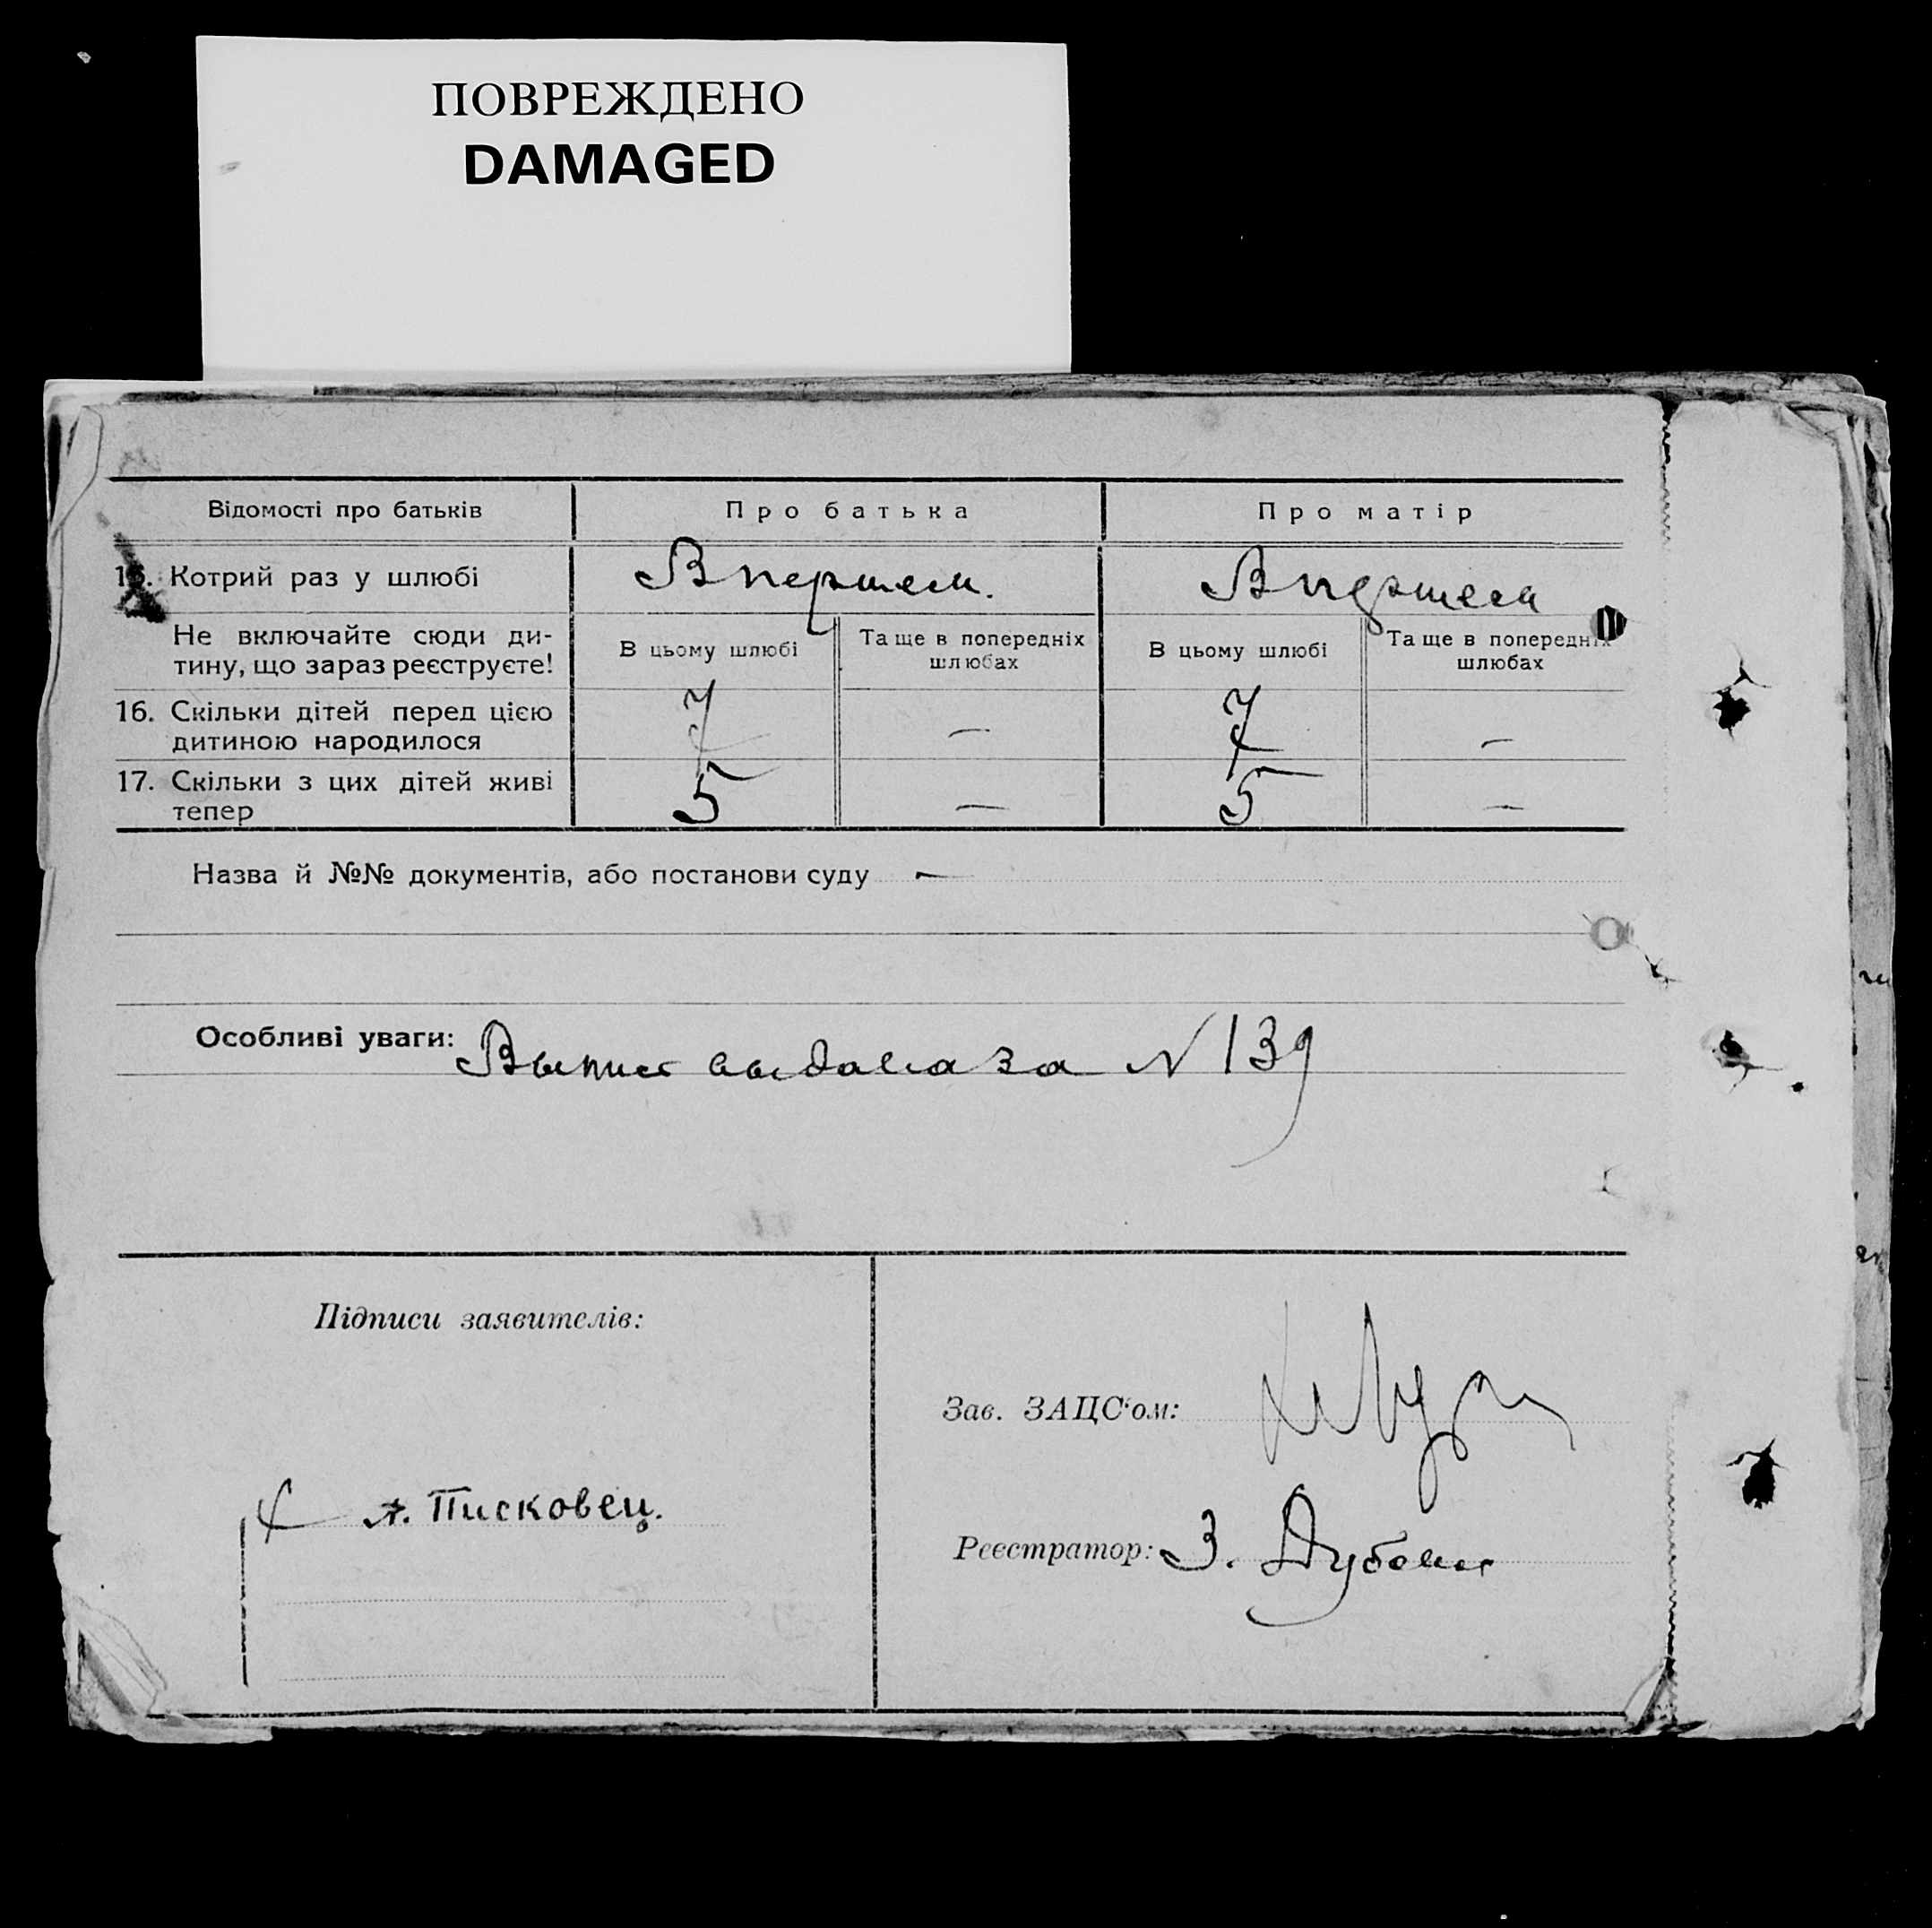 ПОВРЕЖДЕНО
DAMAGED
Відомості про батьків
Про батька
Про матір
15. Котрий раз у шлюбі
В першем.
В першем
Не включайте сюди ди-
тину, що зараз реєструєте!
В цьому шлюбі
Та ще в попередніх
шлюбах
В цьому шлюбі
Та ще в попередніх
шлюбах
16. Скільки дітей перед цією
дитиною народилося
7
—
7
—
17. Скільки з цих дітей живі
тепер
5
—
5
—
Назва й №№ документів, або постанови суду —
Особливі уваги: за N 139
Підписи заявителів:
Зав. ЗАЦС‘ом:
Писковец.
Реєстратор: З.